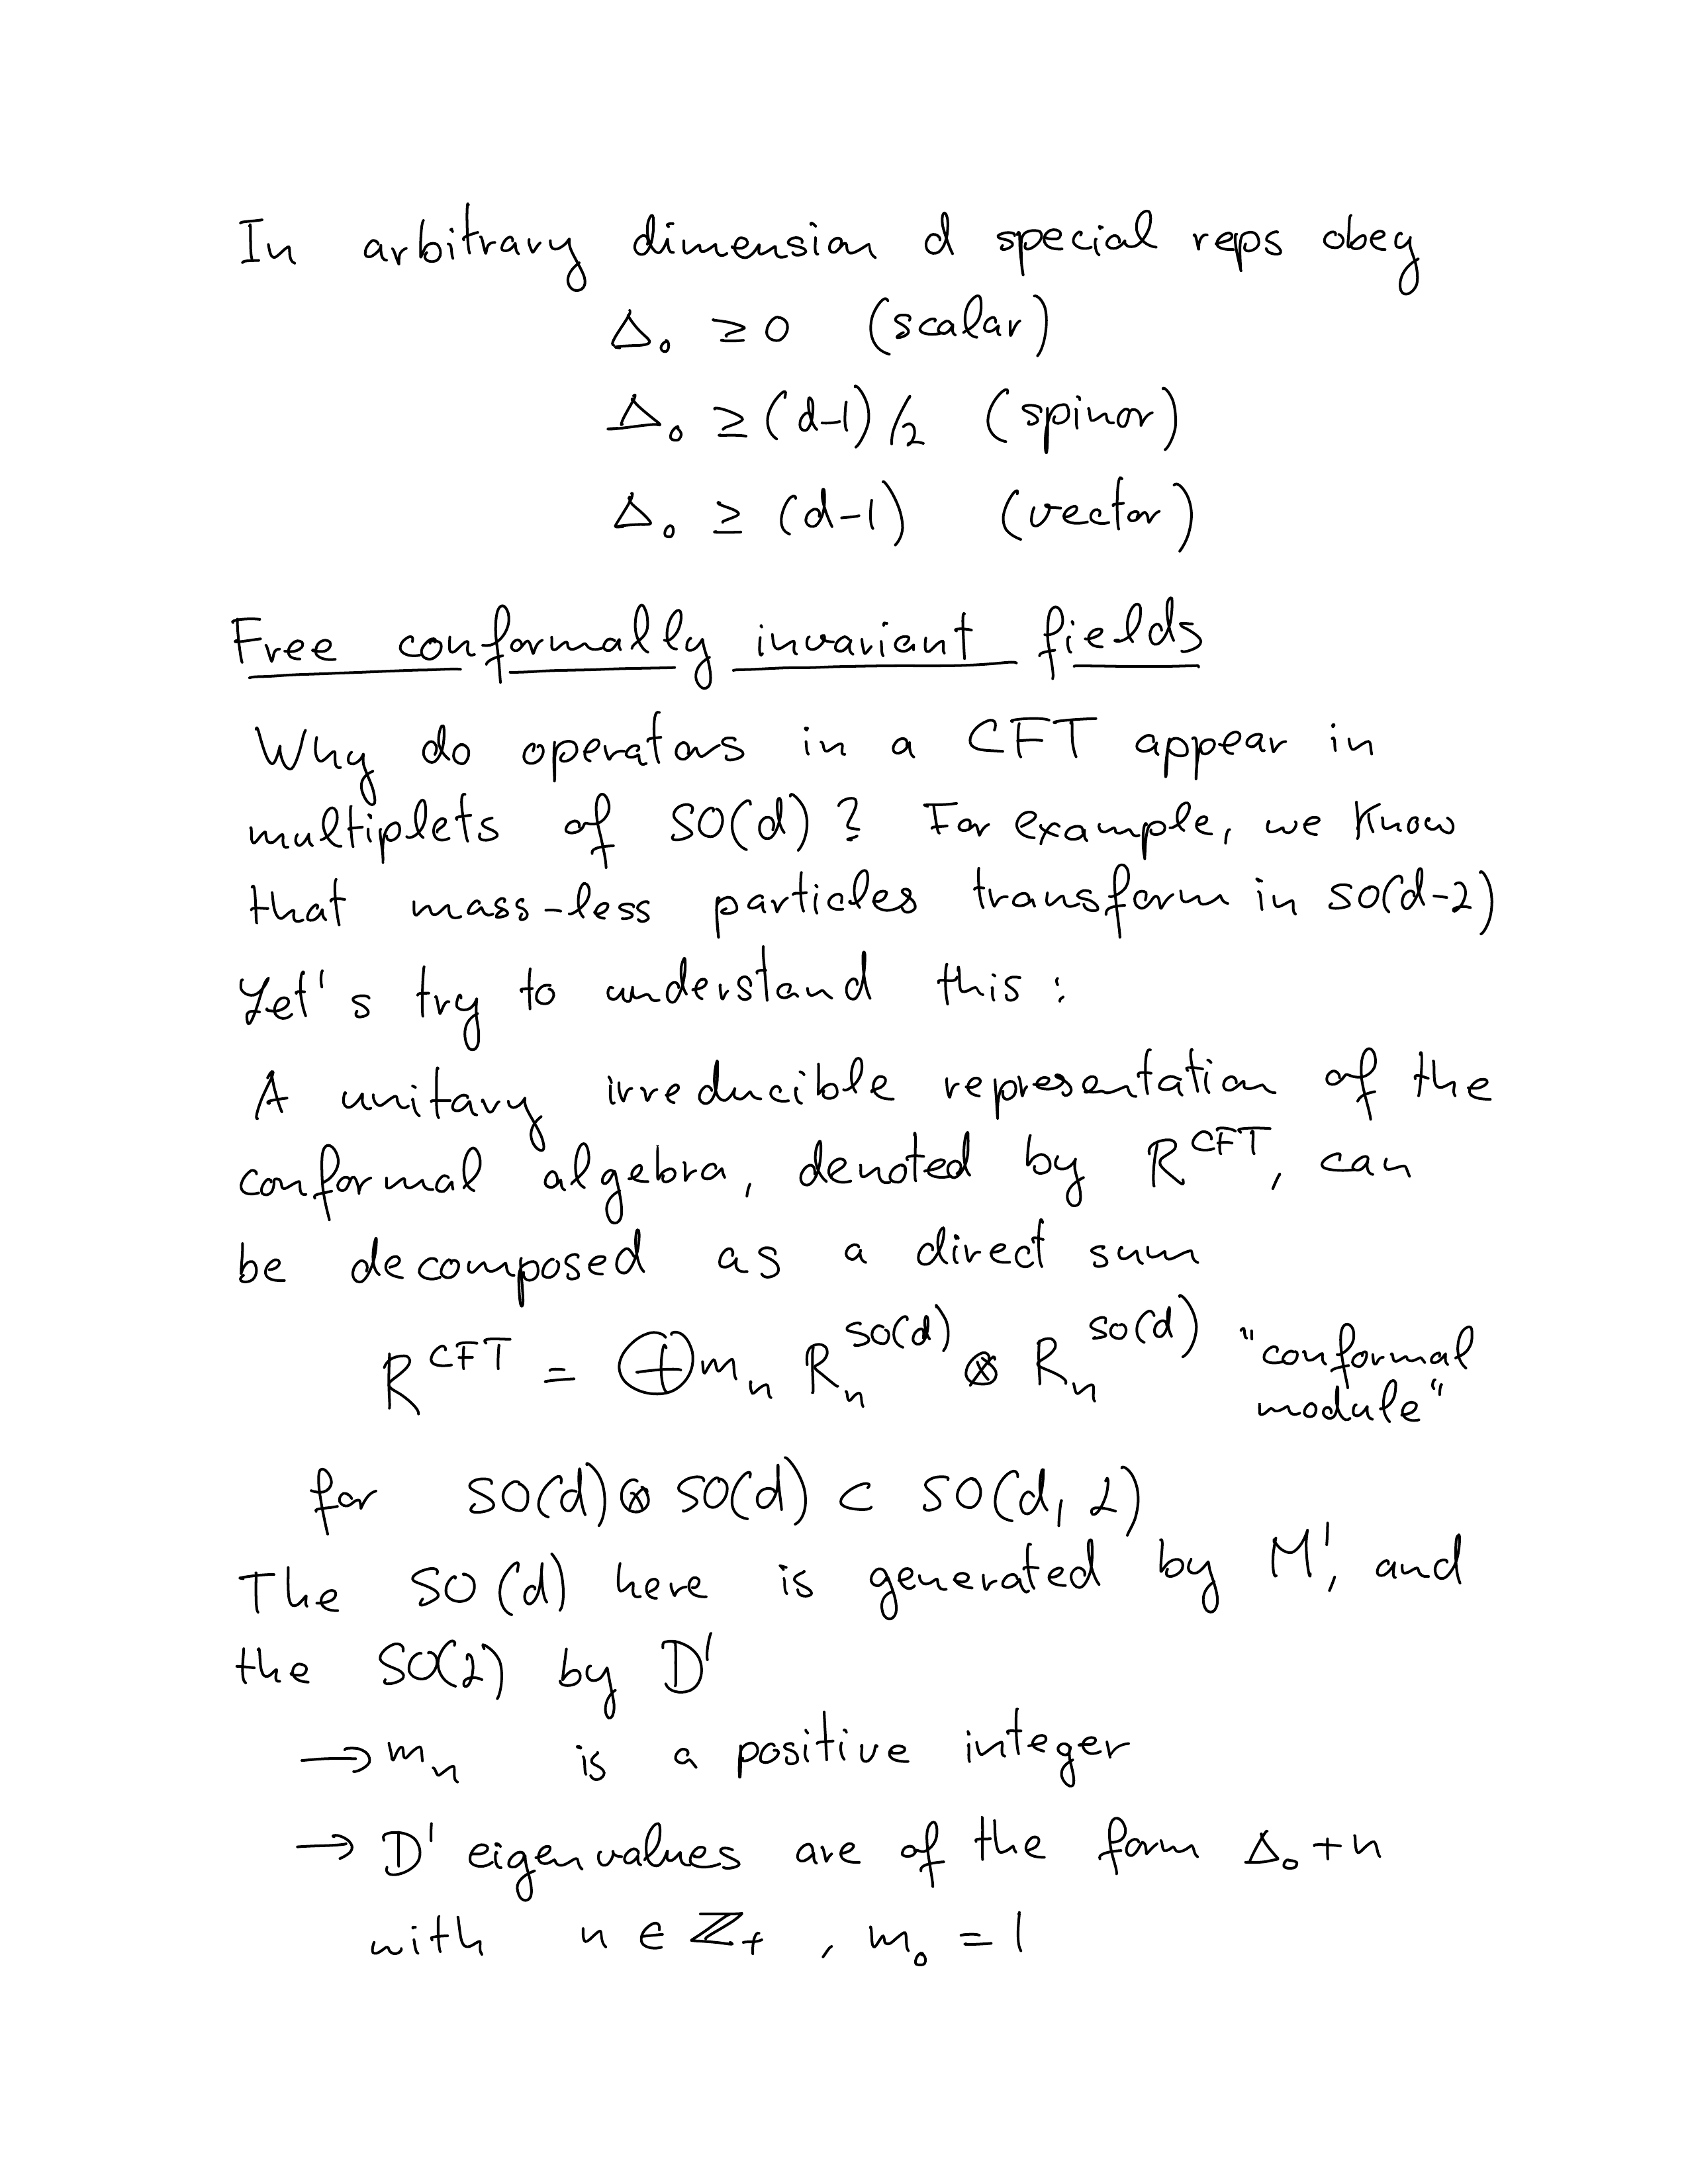 In arbitrary dimension d special reps obey
Δ₀ ≥ 0 (scalar)
Δ₀ ≥ (d-1)/2 (spinor)
Δ₀ ≥ (d-1) (vector)
Free conformally invariant fields
Why do operators in a CFT appear in
multiplets of SO(d)? For example, we know
that mass-less particles transform in SO(d-2)
Let's try to understand this:
A unitary irreducible representation of the
conformal algebra, denoted by R^CFT, can
be decomposed as a direct sum
R^CFT = ⊕ m_n R_n^SO(d) ⊗ R_n^SO(d) "conformal module"
for SO(d) ⊗ SO(d) ⊂ SO(d,2)
The SO(d) here is generated by M', and
the SO(2) by D'
→ m_n is a positive integer
→ D' eigenvalues are of the form Δ₀+n
with n ∈ ℤ₊ , m₀ = 1